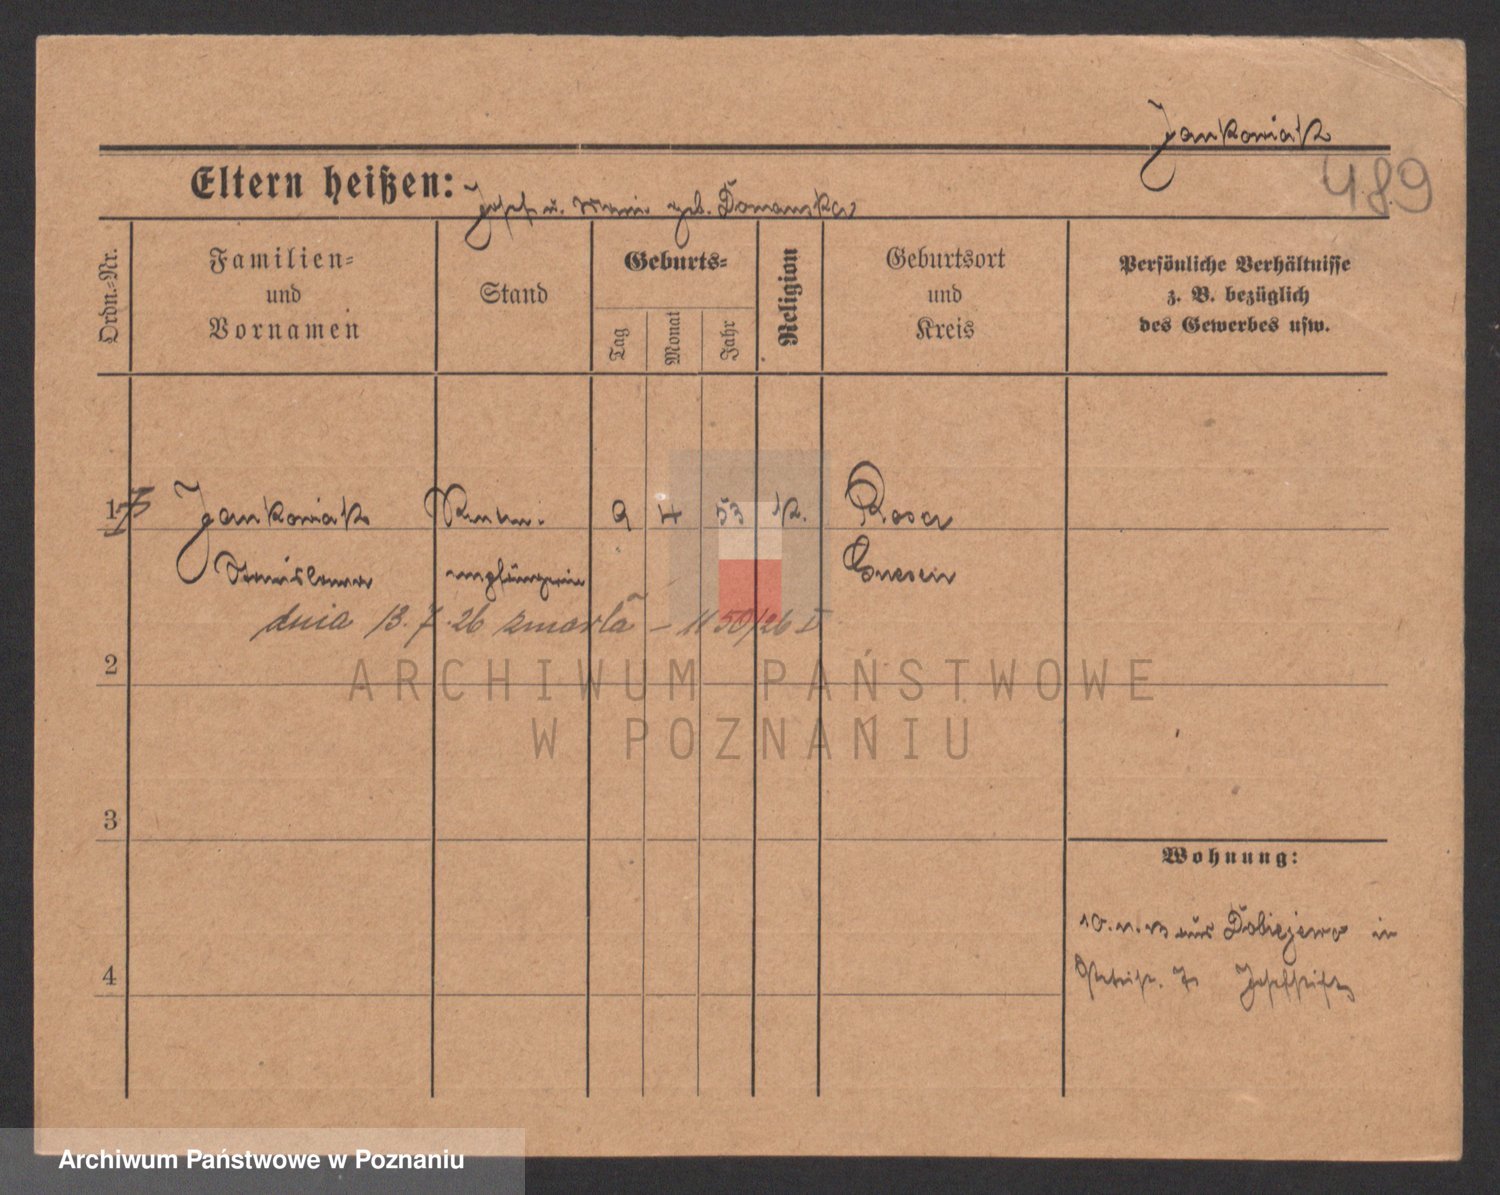 Jankowiak
489
Eltern heißen: Josef u. Marie geb. Domanska
Ordn.-Nr.
Familien-
und
Vornamen
Stand
Geburts-
Tag
Monat
Jahr
Religion
Geburtsort
und
Kreis
Persönliche Verhältnisse
z. B. bezüglich
des Gewerbes usw.
1 Jankowiak 9 4 53 k. Rosa
Stanislawa empfängerin Gnesen
dnia 13. 7. 26 zmarła – 1150/26 I
2
3
4
Wohnung:
10. aus Dobiejewo in
7 Josefstift
ARCHIWUM PAŃSTWOWE
W POZNANIU
Archiwum Państwowe w Poznaniu